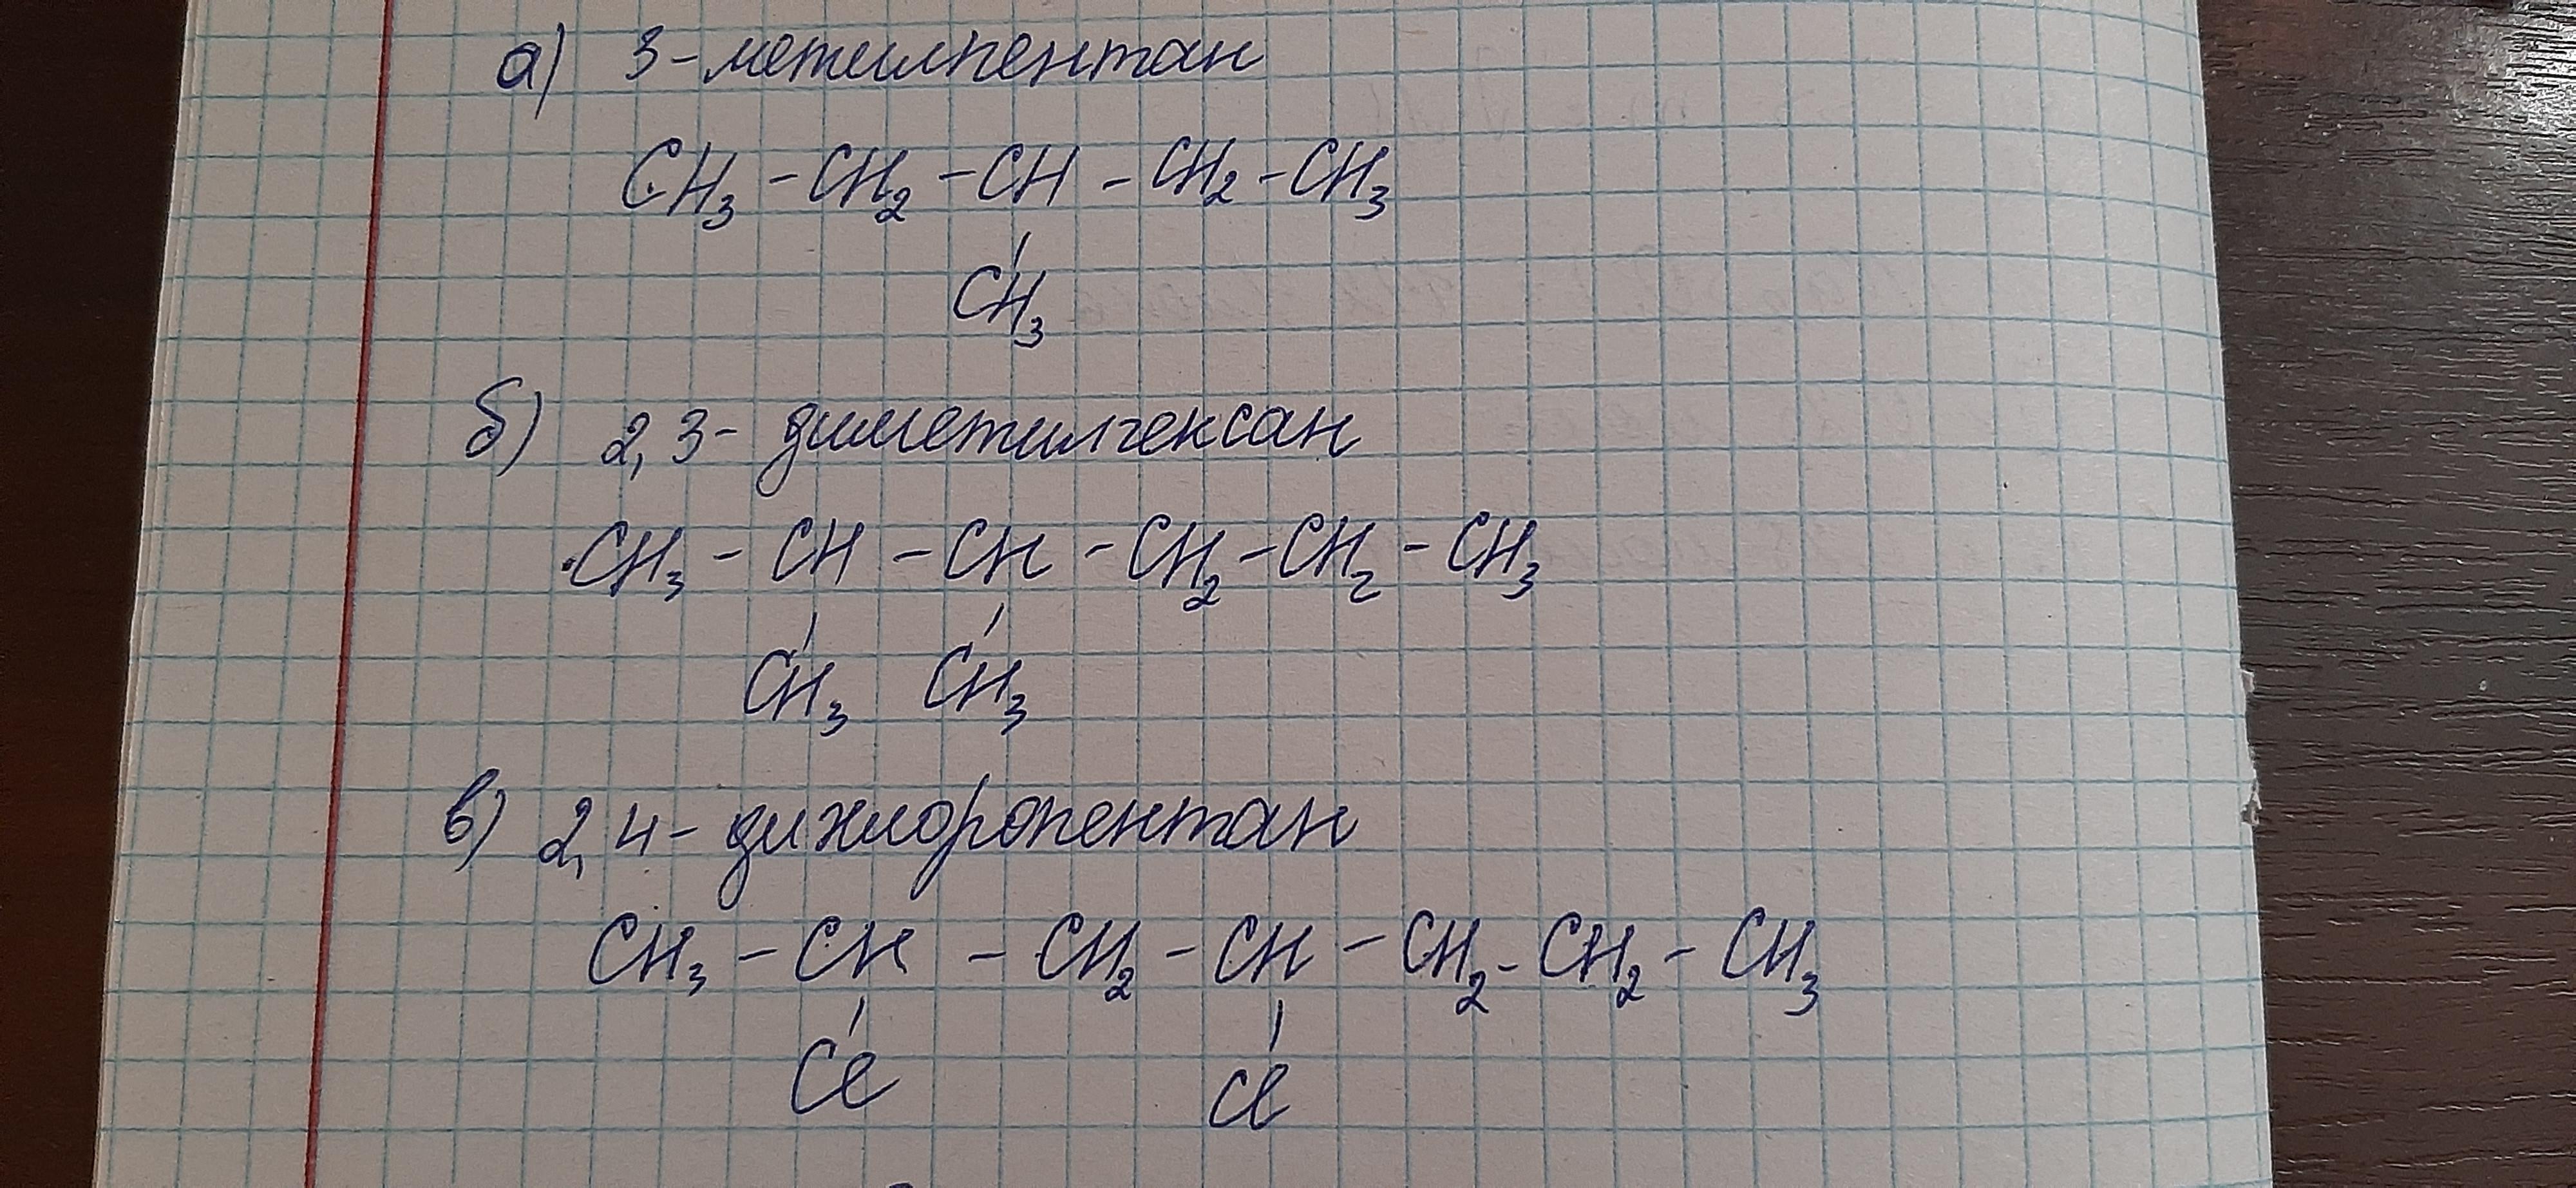 а) 3-метилпентан
CH₃ - CH₂ - CH - CH₂ - CH₃
CH₃
б) 2,3- диметилгексан
CH₃ - CH - CH - CH₂ - CH₂ - CH₃
CH₃ CH₃
в) 2,4- дихлоропентан
CH₃ - CH - CH₂ - CH - CH₂ - CH₂ - CH₃
Cl Cl